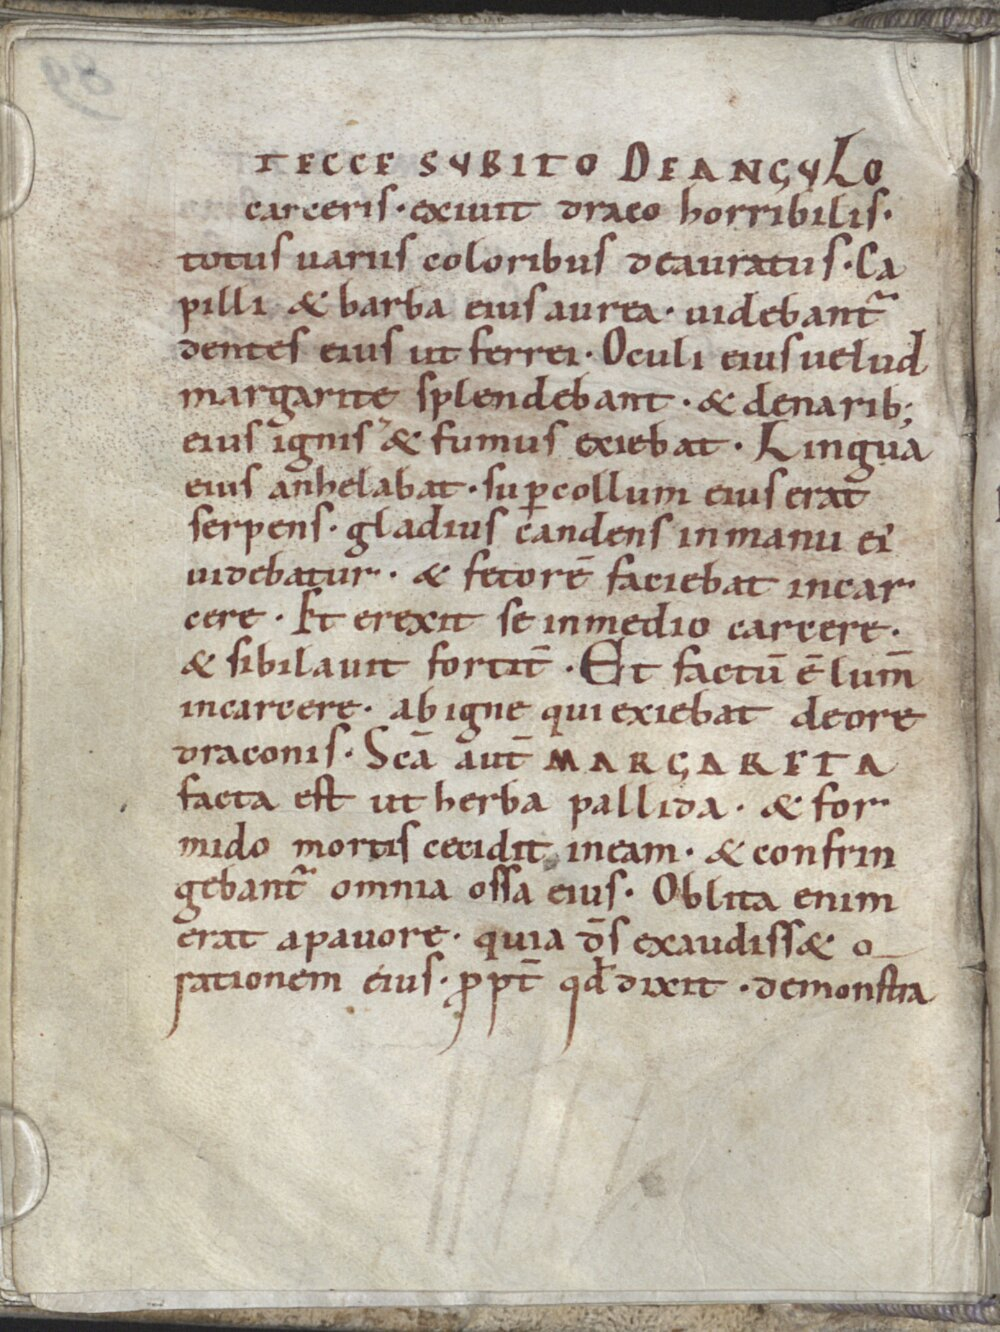 T ECCE SVBITO DEANGVLO
carceris · exiuit draco horribilis ·
totus uariis coloribus deauratus · Ca
pilli & barba eius aurea · uidebant᷑
dentes eius ut ferrei · Oculi eius uelud
margarite splendebant · & denarib;
eius ignis & fumus exiebat · Lingua
eius anhelabat · suꝑcollum eius erat
serpens · gladius candens inmanu ei'
uidebatur · & fetorē faciebat incar
cere · Et erexit se inmedio carcere ·
& sibilauit fortit̄ · Et factū ē lum̄
incarcere · ab igne qui exiebat deore
draconis · Scā aut̄ MARGARETA
facta est ut herba pallida · & for
mido mortis cecidit ineam · & confrin
gebant᷑ omnia ossa eius · Oblita enim
erat apauore · quia d̄s exaudiss& o
rationem eius · ꝓpt̄ qđ dixit · demonstra